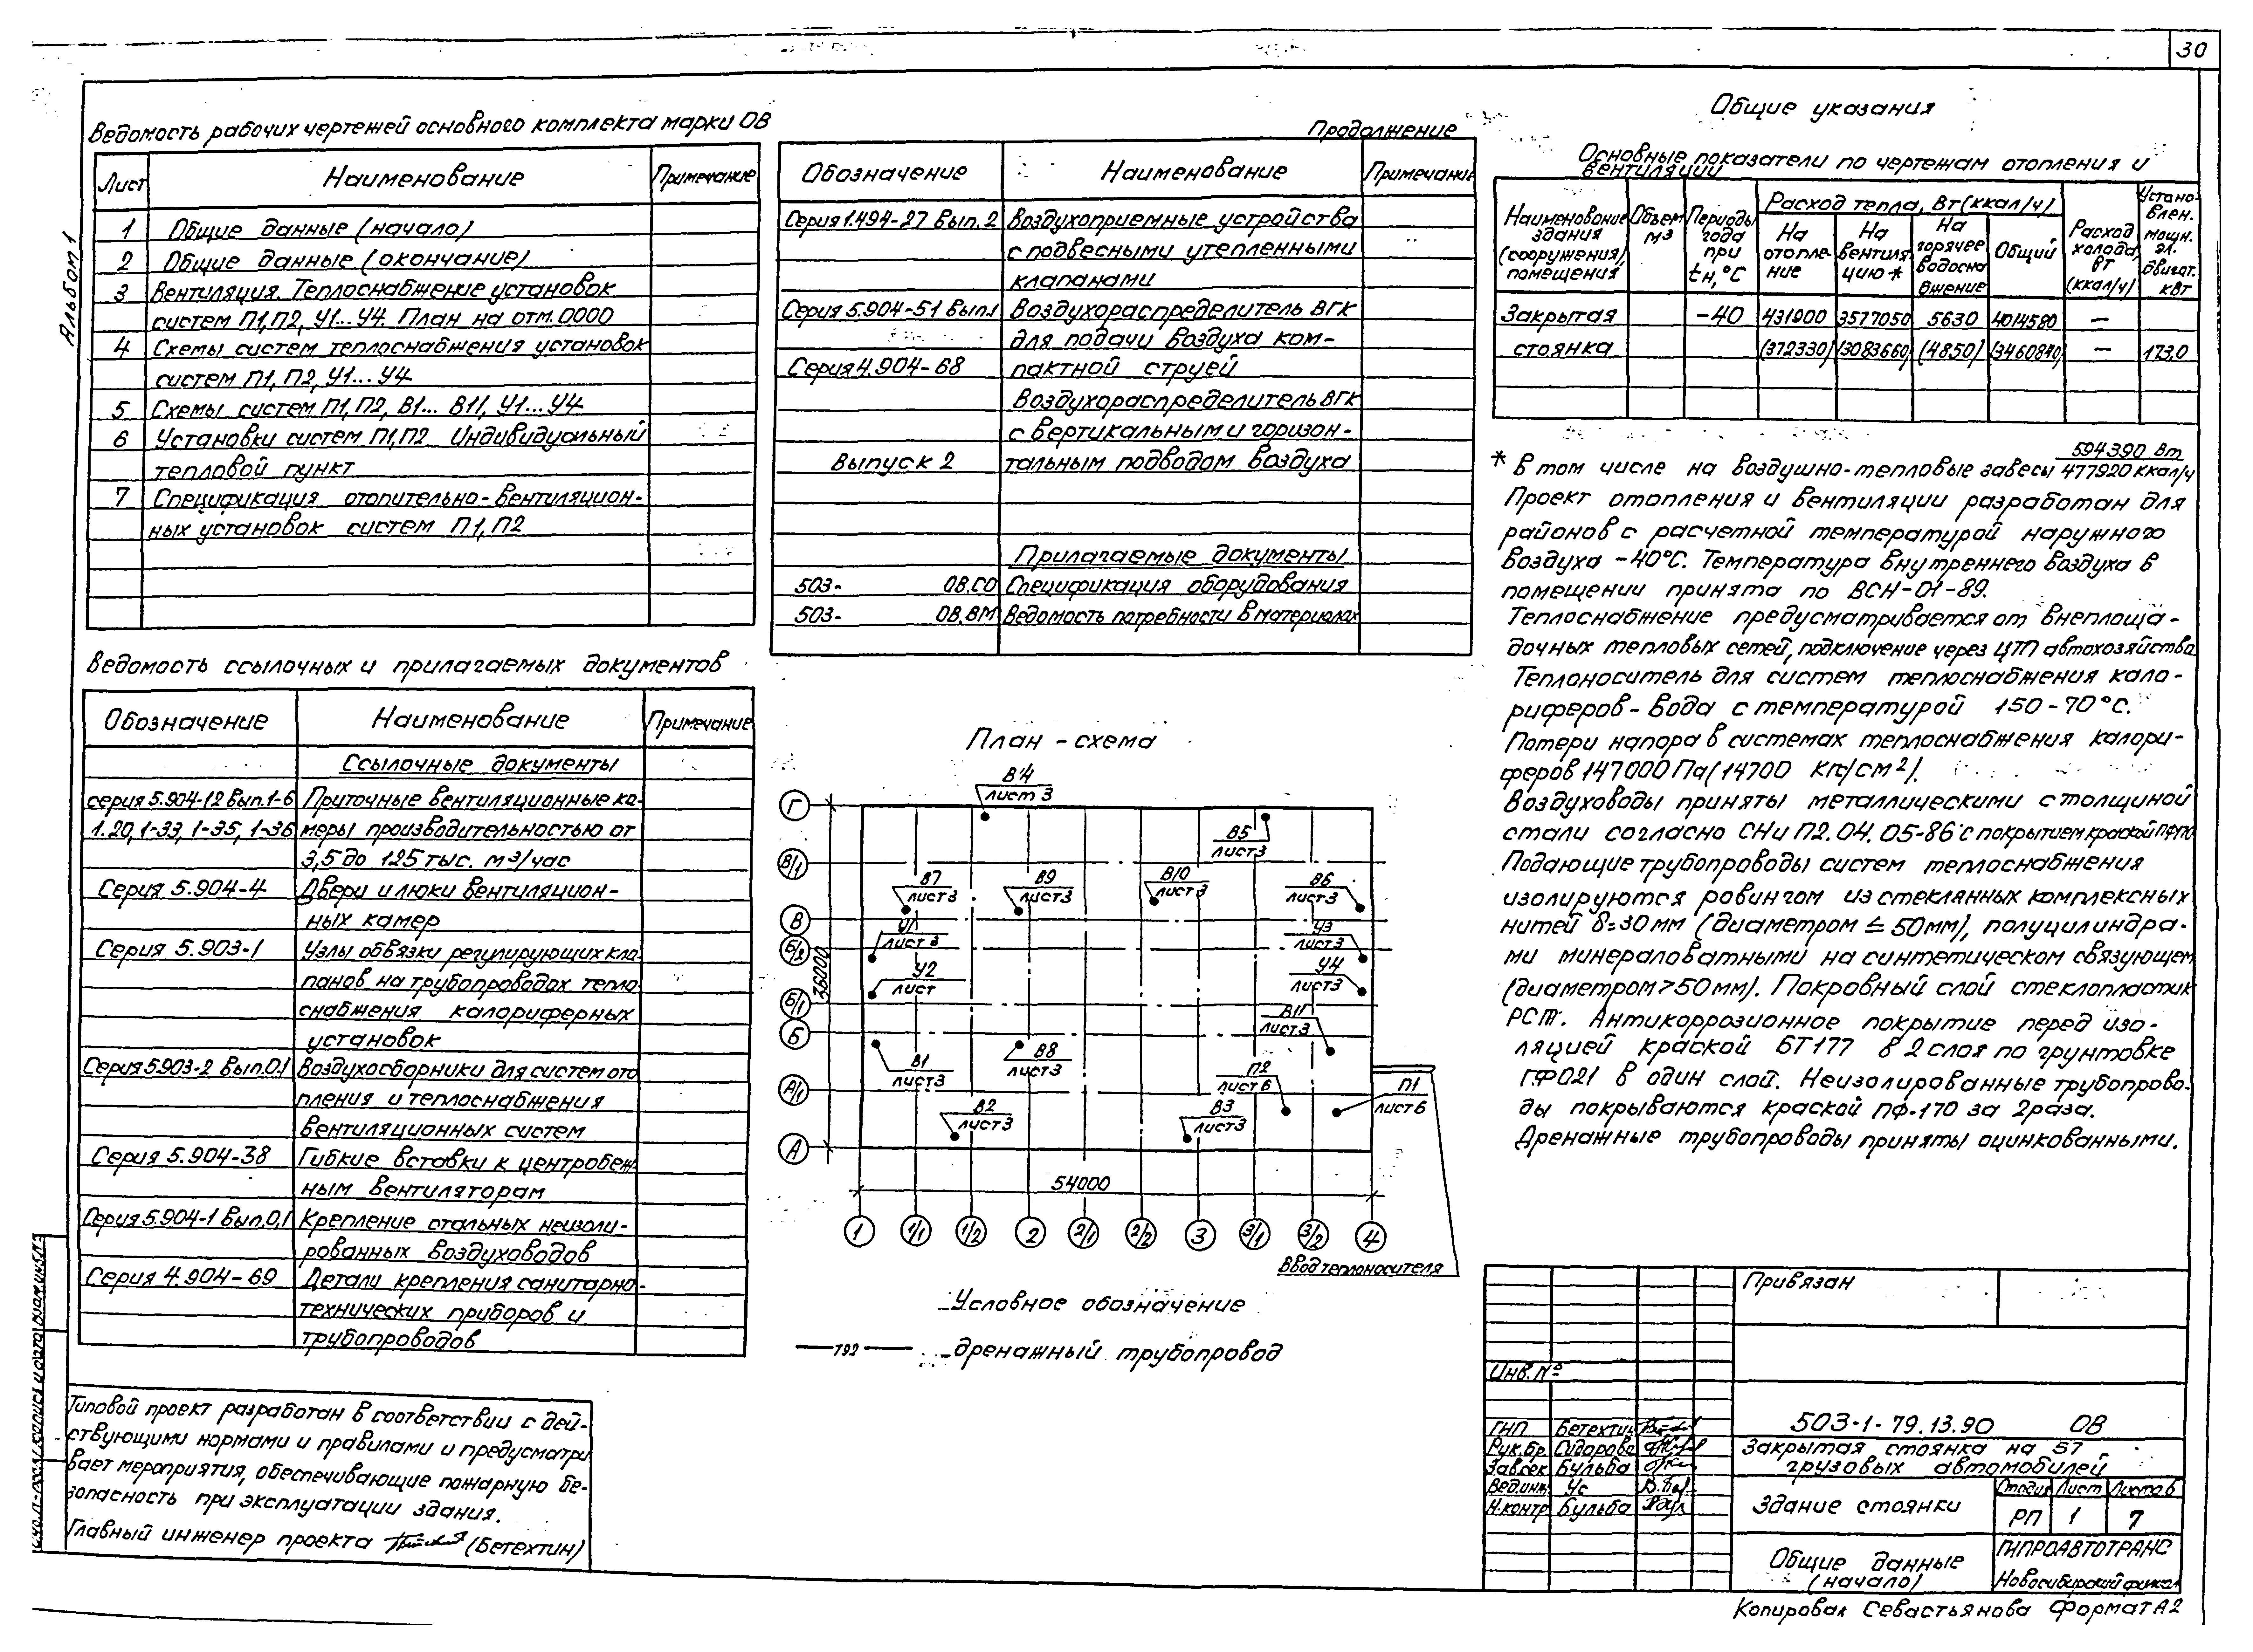 30
Альбом 1
Ведомость рабочих чертежей основного комплекта марки ОВ
Лист Наименование Примечание
1 Общие данные (начало)
2 Общие данные (окончание)
3 Вентиляция. Теплоснабжение установок
систем П1,П2, У1...У4. План на отм. 0000
4 Схемы систем теплоснабжения установок
систем П1, П2, У1...У4
5 Схемы систем П1, П2, В1... В11, У1...У4
6 Установки систем П1,П2 Индивидуальный
тепловой пункт
7 Спецификация отопительно-вентиляцион-
ных установок систем П1, П2
Ведомость ссылочных и прилагаемых документов
Обозначение Наименование Примечание
Ссылочные документы
серия 5.904-12 вып.1-6 Приточные вентиляционные ка-
1.20, 1-33, 1-35, 1-36 меры производительностью от
3,5 до 125 тыс. м³/час
Серия 5.904-4 Двери и люки вентиляцион-
ных камер
Серия 5.903-1 Узлы обвязки регулирующих кла-
панов на трубопроводах тепло-
снабжения калориферных
установок
Серия 5.903-2 Вып.0.1 Воздухосборники для систем ото
пления и теплоснабжения
вентиляционных систем
Серия 5.904-38 Гибкие вставки к центробеж-
ным вентиляторам
Серия 5.904-1 Вып.0,1 Крепление стальных неизоли-
рованных воздуховодов
Серия 4.904-69 Детали крепления санитарно-
технических приборов и
трубопроводов
Типовой проект разработан в соответствии с дей-
ствующими нормами и правилами и предусматри
вает мероприятия, обеспечивающие пожарную бе-
зопасность при эксплуатации здания.
Главный инженер проекта (Бетехтин)
Продолжение
Обозначение Наименование Примечание
Серия 1.494-27 Вып. 2 Воздухоприемные устройства
с подвесными утепленными
клапанами
Серия 5.904-51 Вып.1 Воздухораспределитель ВГК
для подачи воздуха ком-
Серия 4.904-68 пактной струей
Воздухораспределитель ВГК
с вертикальным и горизон-
Выпуск 2 тальным подводом воздуха
Прилагаемые документы
503- ОВ.СО Спецификация оборудования
503- ОВ.ВМ Ведомость потребности в материалах
План - схема
В4
лист 3
Г
В5
лист 3
В/1
В7 В9 В10 В6
лист 3 лист 3 лист 3 лист 3
В
У1 У3
лист 3 лист 3
Б/2
У2 У4
лист лист 3
36000
Б/1
В11
лист 3
Б
В1 В8 П2 П1
лист 3 лист 3 лист 6 лист 6
А/1
В2 В3
лист 3 лист 3
А
54000
1 1/1 1/2 2 2/1 2/2 3 3/1 3/2 4
Ввод теплоносителя
Условное обозначение
Т92 - дренажный трубопровод
Общие указания
Основные показатели по чертежам отопления и
вентиляции
Наименование здания (сооружения), помещения
Объем м³
Периоды года при tн,°С
Расход тепла, Вт (ккал/ч)
На отопле-ние
На вентиля-цию *
На горячее водосна бжение
Общий
Расход холода, Вт (ккал/ч)
Устано-влен. мощн. эл. двигат. кВт
Закрытая -40 431900 3577050 5630 4014580 —
стоянка (372330) (3083660) (4850) (3460840) — 173.0
594390 Вт
* в том числе на воздушно-тепловые завесы 477920 ккал/ч
Проект отопления и вентиляции разработан для
районов с расчетной температурой наружного
воздуха -40°С. Температура внутреннего воздуха в
помещении принята по ВСН-01-89.
Теплоснабжение предусматривается от внеплоща-
дочных тепловых сетей, подключение через ЦТП автохозяйства
Теплоноситель для систем теплоснабжения кало-
риферов - вода с температурой 150-70°С.
Потери напора в системах теплоснабжения калори-
феров 147000 Па (14700 кгс/см²).
Воздуховоды приняты металлическими с толщиной
стали согласно СНиП2.04.05-86 с покрытием краской ПФ170
Подающие трубопроводы систем теплоснабжения
изолируются ровингом из стеклянных комплексных
нитей δ=30мм (диаметром ≤ 50мм), полуцилиндра-
ми минераловатными на синтетическом связующем
(диаметром >50мм). Покровный слой стеклопластик
РСТ. Антикоррозионное покрытие перед изо-
ляцией краской БТ177 в 2 слоя по грунтовке
ГФ021 в один слой. Неизолированные трубопрово-
ды покрываются краской ПФ-170 за 2 раза.
Дренажные трубопроводы приняты оцинкованными.
Привязан
Инв. №
503-1-79.13.90 ОВ
ГИП Бетехтин
Рук.бр. Сидорова
Зав.сек Бульба
Вед.инж Ус
Н.контр Бульба
Закрытая стоянка на 57
грузовых автомобилей
Здание стоянки
Стадия Лист Листов
РП 1 7
Общие данные
(начало)
ГИПРОАВТОТРАНС
Новосибирский филиал
Копировал Севастьянова Формат А2